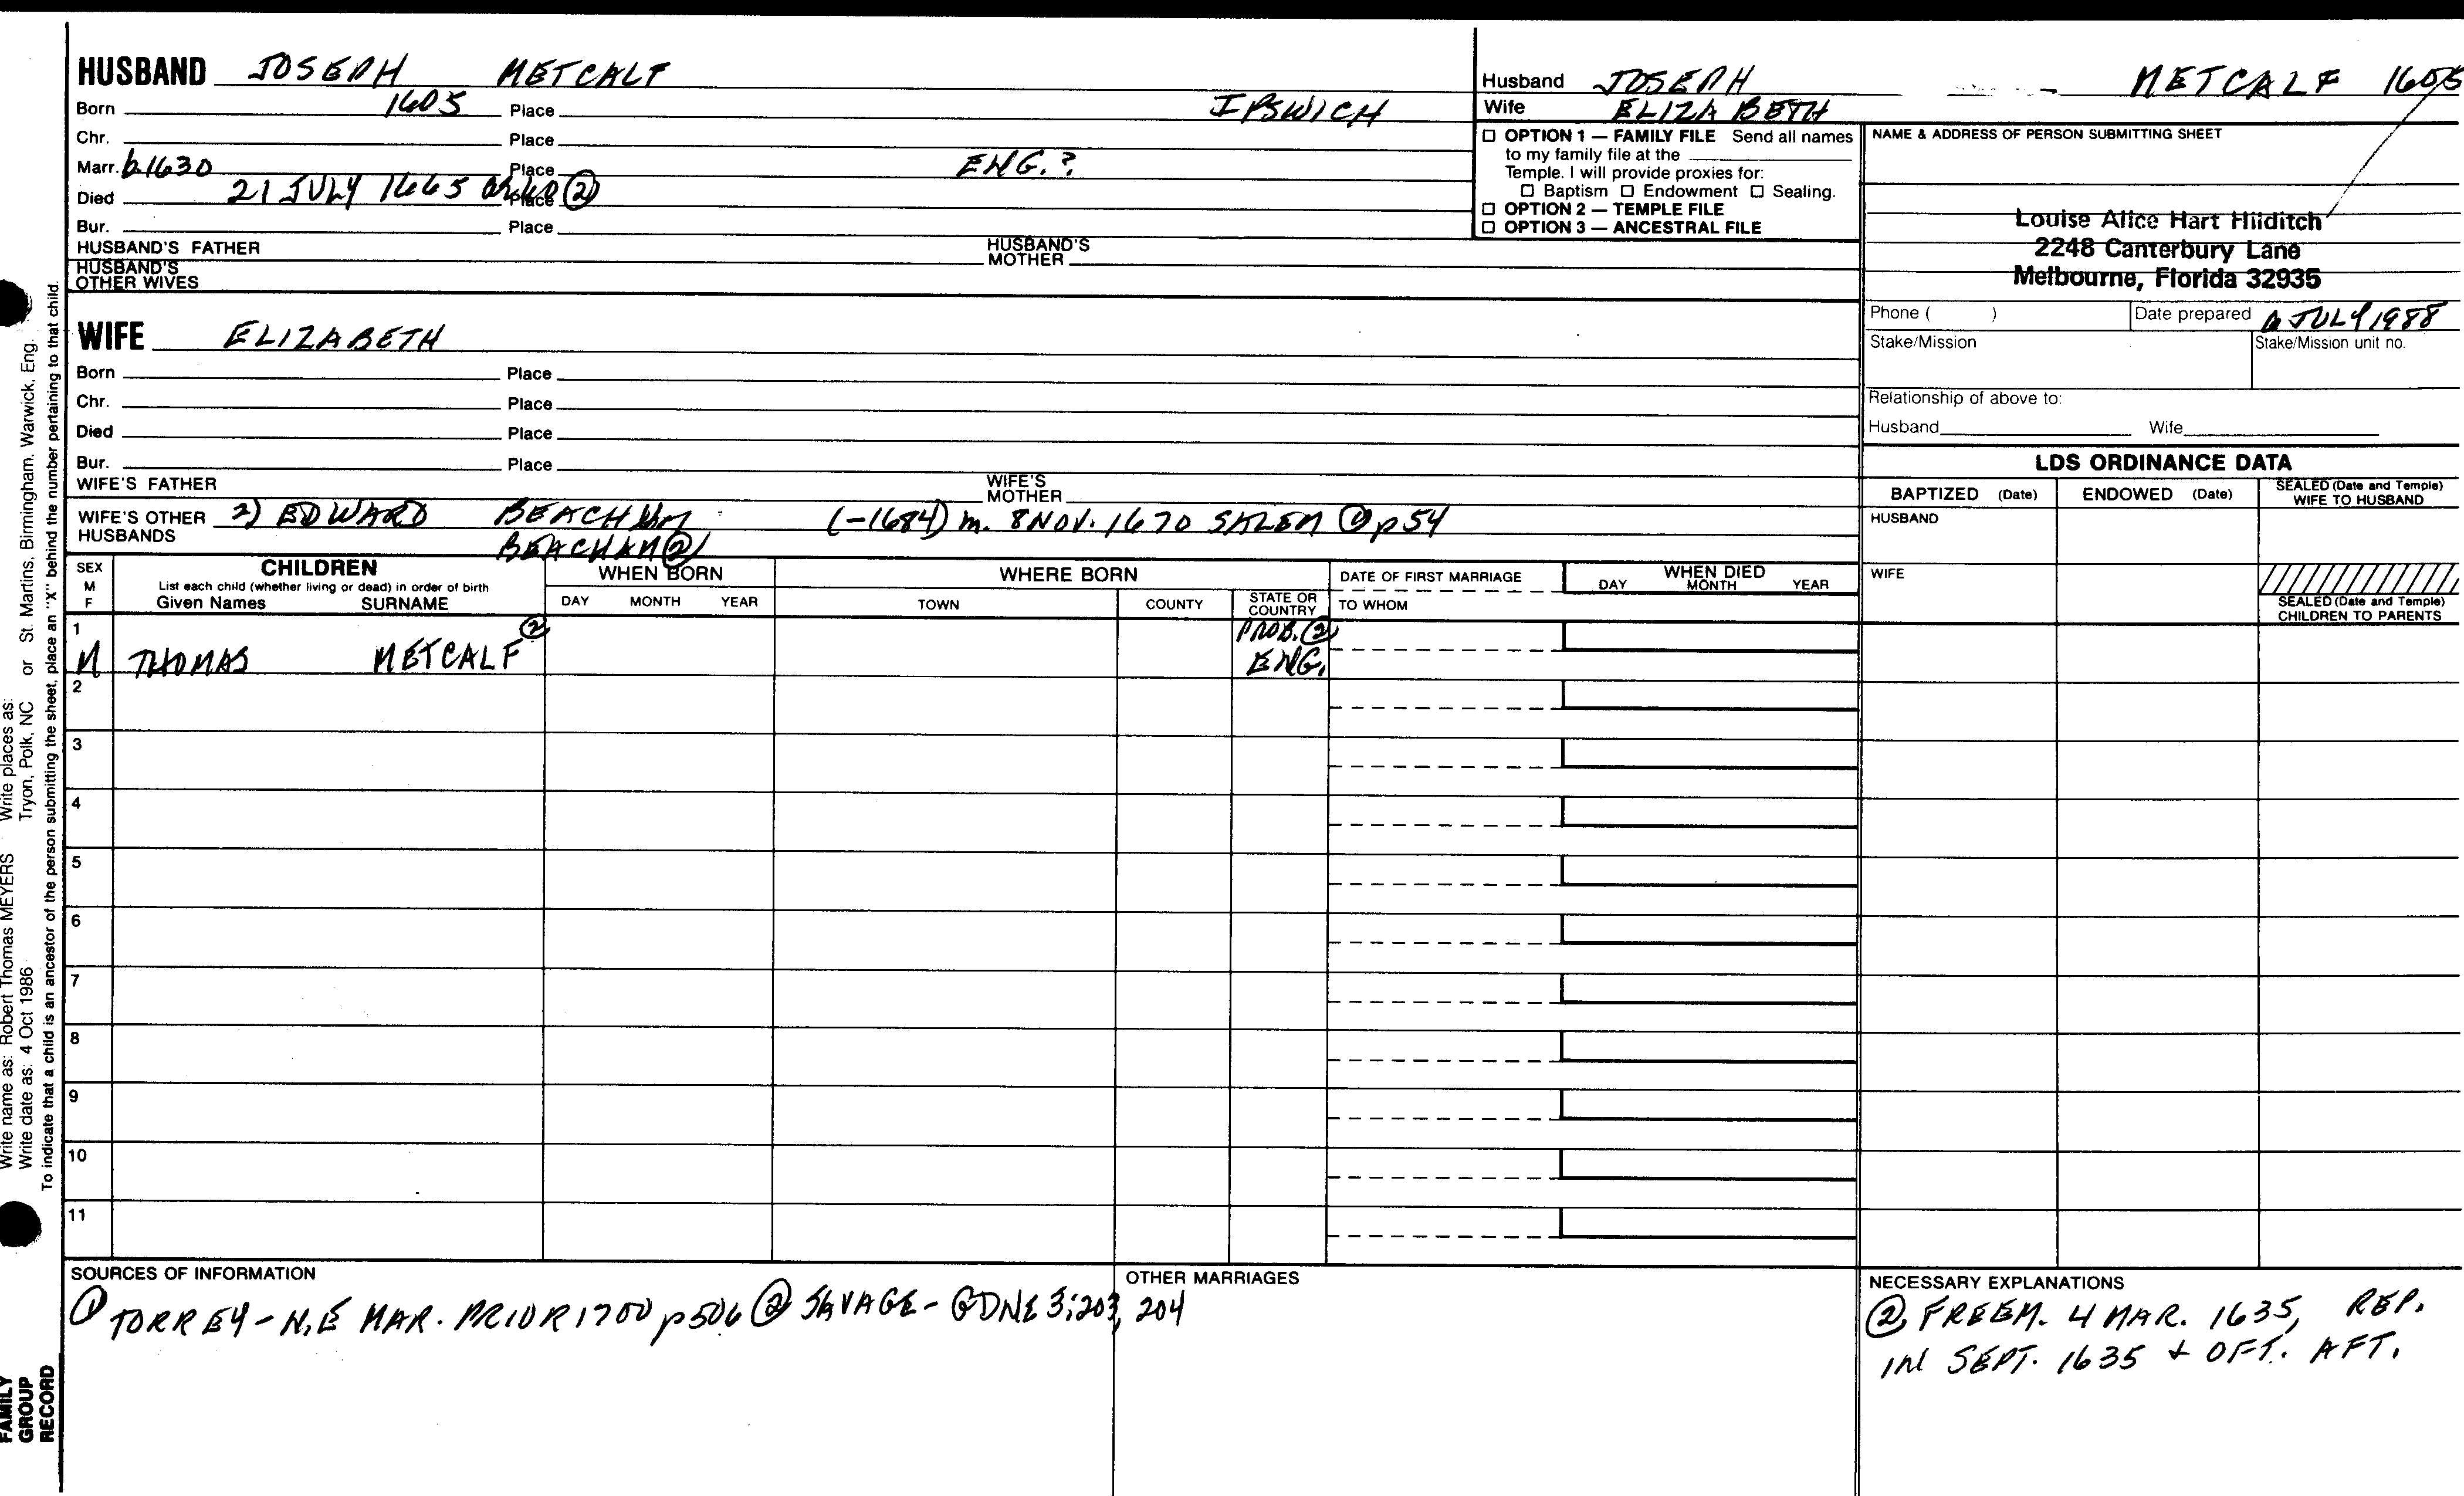 HUSBAND JOSEPH METCALF
Born 1605 Place IPSWICH
Chr. Place
Marr. b1630 Place ENG.?
Died 21 JULY 1665 Place ②
Bur. Place
HUSBAND'S FATHER HUSBAND'S MOTHER
HUSBAND'S OTHER WIVES
WIFE ELIZABETH
Born Place
Chr. Place
Died Place
Bur. Place
WIFE'S FATHER WIFE'S MOTHER
WIFE'S OTHER HUSBANDS 2) EDWARD BEACHUM (-1684) m. 8 NOV. 1670 SALEM ① p54
BEACHAM ②
Husband JOSEPH METCALF 1605
Wife ELIZABETH
☐ OPTION 1 — FAMILY FILE Send all names
to my family file at the
Temple. I will provide proxies for:
☐ Baptism ☐ Endowment ☐ Sealing.
☐ OPTION 2 — TEMPLE FILE
☐ OPTION 3 — ANCESTRAL FILE
NAME & ADDRESS OF PERSON SUBMITTING SHEET
Louise Alice Hart Hilditch
2248 Canterbury Lane
Melbourne, Florida 32935
Phone ( ) Date prepared 6 JULY 1988
Stake/Mission Stake/Mission unit no.
Relationship of above to:
Husband Wife
LDS ORDINANCE DATA
BAPTIZED (Date) ENDOWED (Date) SEALED (Date and Temple) WIFE TO HUSBAND
HUSBAND
WIFE
SEALED (Date and Temple) CHILDREN TO PARENTS
SEX M F
CHILDREN
List each child (whether living or dead) in order of birth
Given Names SURNAME
WHEN BORN
DAY MONTH YEAR
WHERE BORN
TOWN COUNTY STATE OR COUNTRY
DATE OF FIRST MARRIAGE
TO WHOM
WHEN DIED
DAY MONTH YEAR
1 M THOMAS METCALF ② PROB. ② ENG.
2
3
4
5
6
7
8
9
10
11
SOURCES OF INFORMATION
① TORREY - N.E MAR. PRIOR 1700 p506 ② SAVAGE - GDNE 3:203, 204
OTHER MARRIAGES
NECESSARY EXPLANATIONS
② FREEM. 4 MAR. 1635, REP.
IN SEPT. 1635 + OFT. AFT.
Write name as: Robert Thomas MEYERS Write places as:
Write date as: 4 Oct 1986 Tryon, Polk, NC or St. Martins, Birmingham, Warwick, Eng.
To indicate that a child is an ancestor of the person submitting the sheet, place an "X" behind the number pertaining to that child.
FAMILY
GROUP
RECORD